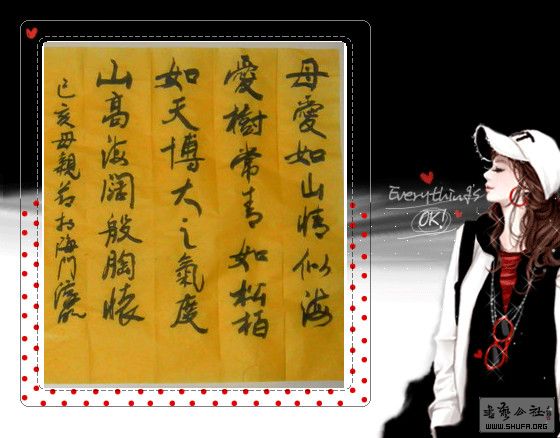 母愛如山情似海
愛樹常青如松柏
如天博大之氣度
山高海闊般胸懷
己亥母親节於海門
Everything's
OK!
书艺公社
WWW.SHUFA.ORG